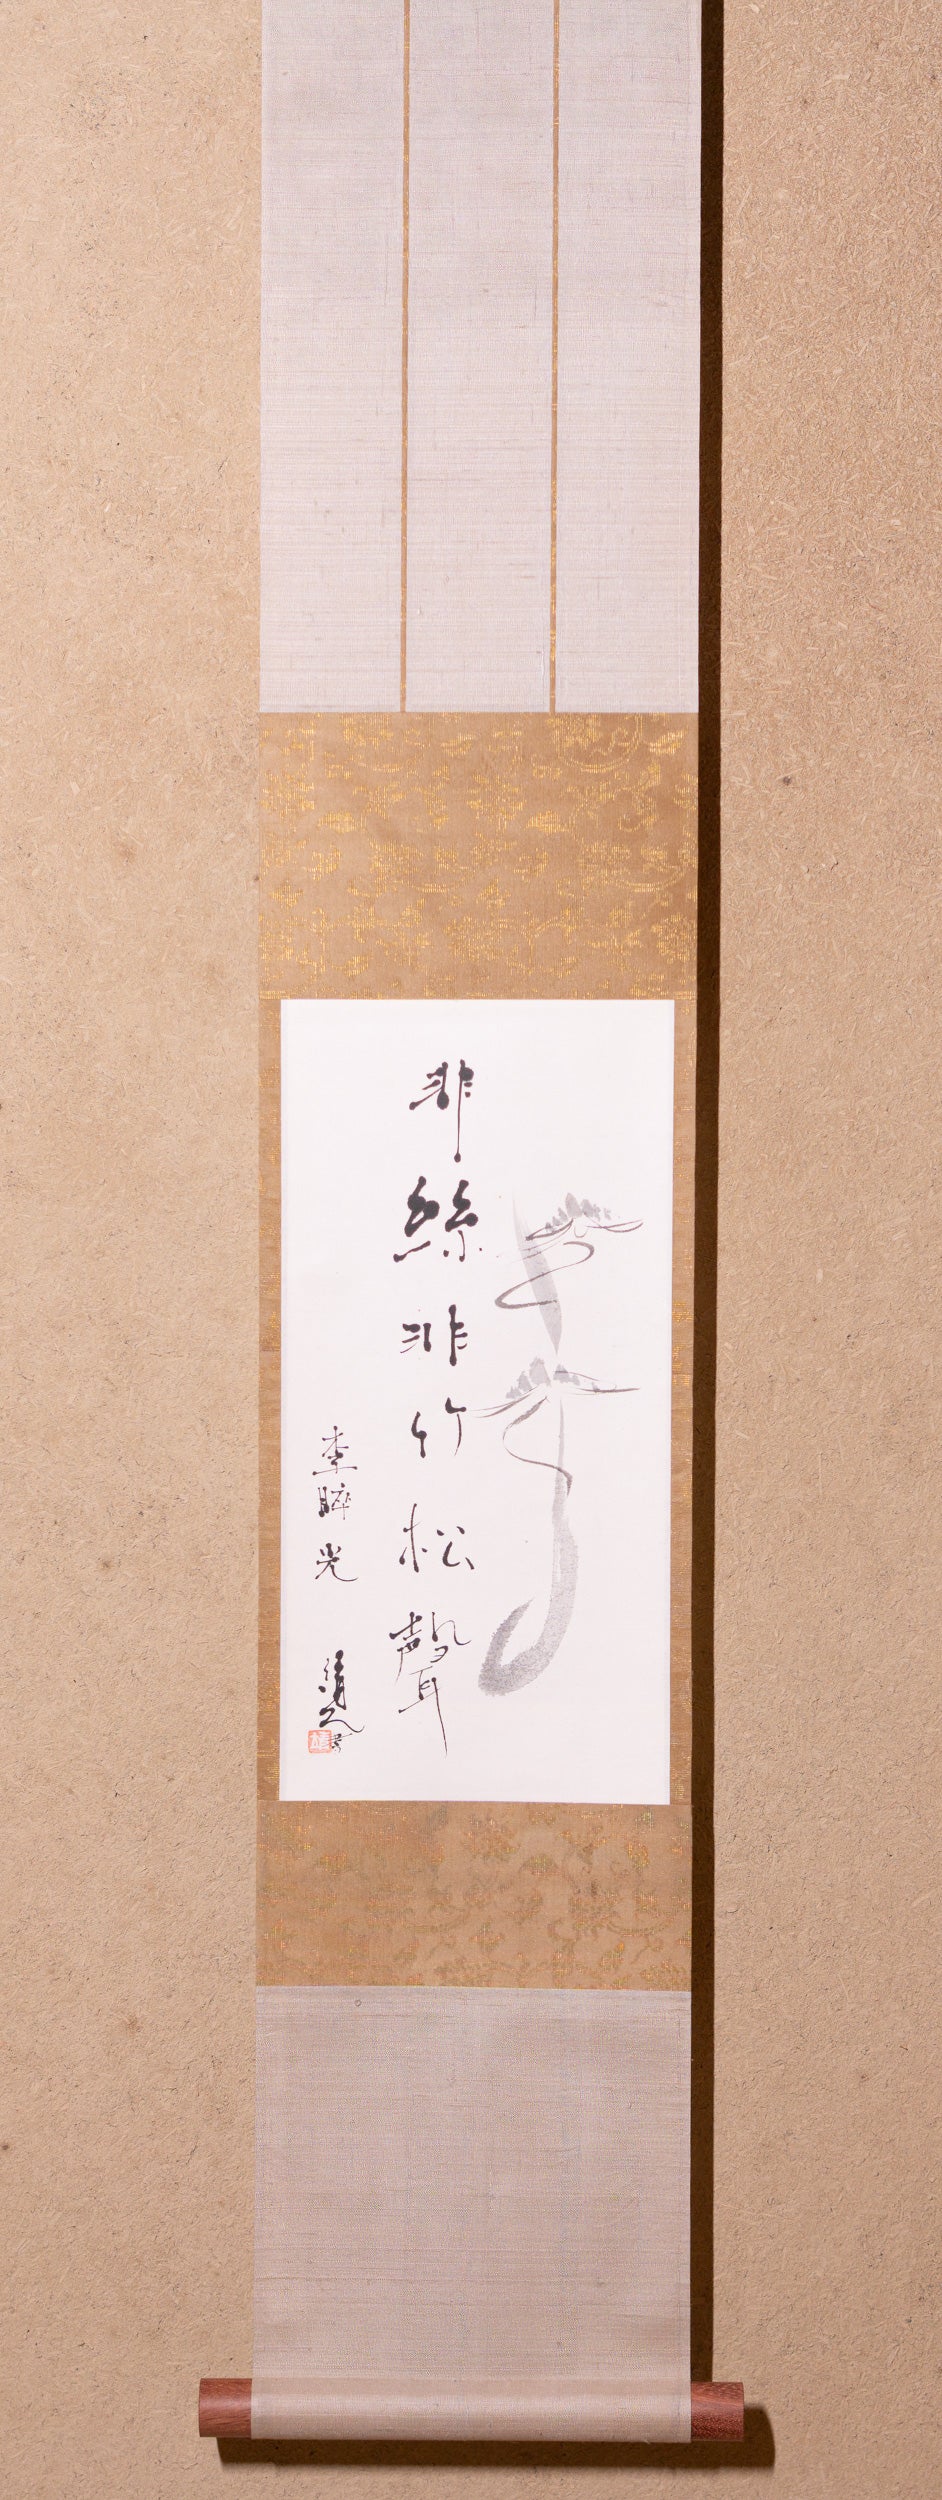 非絲非竹松聲
李晬光